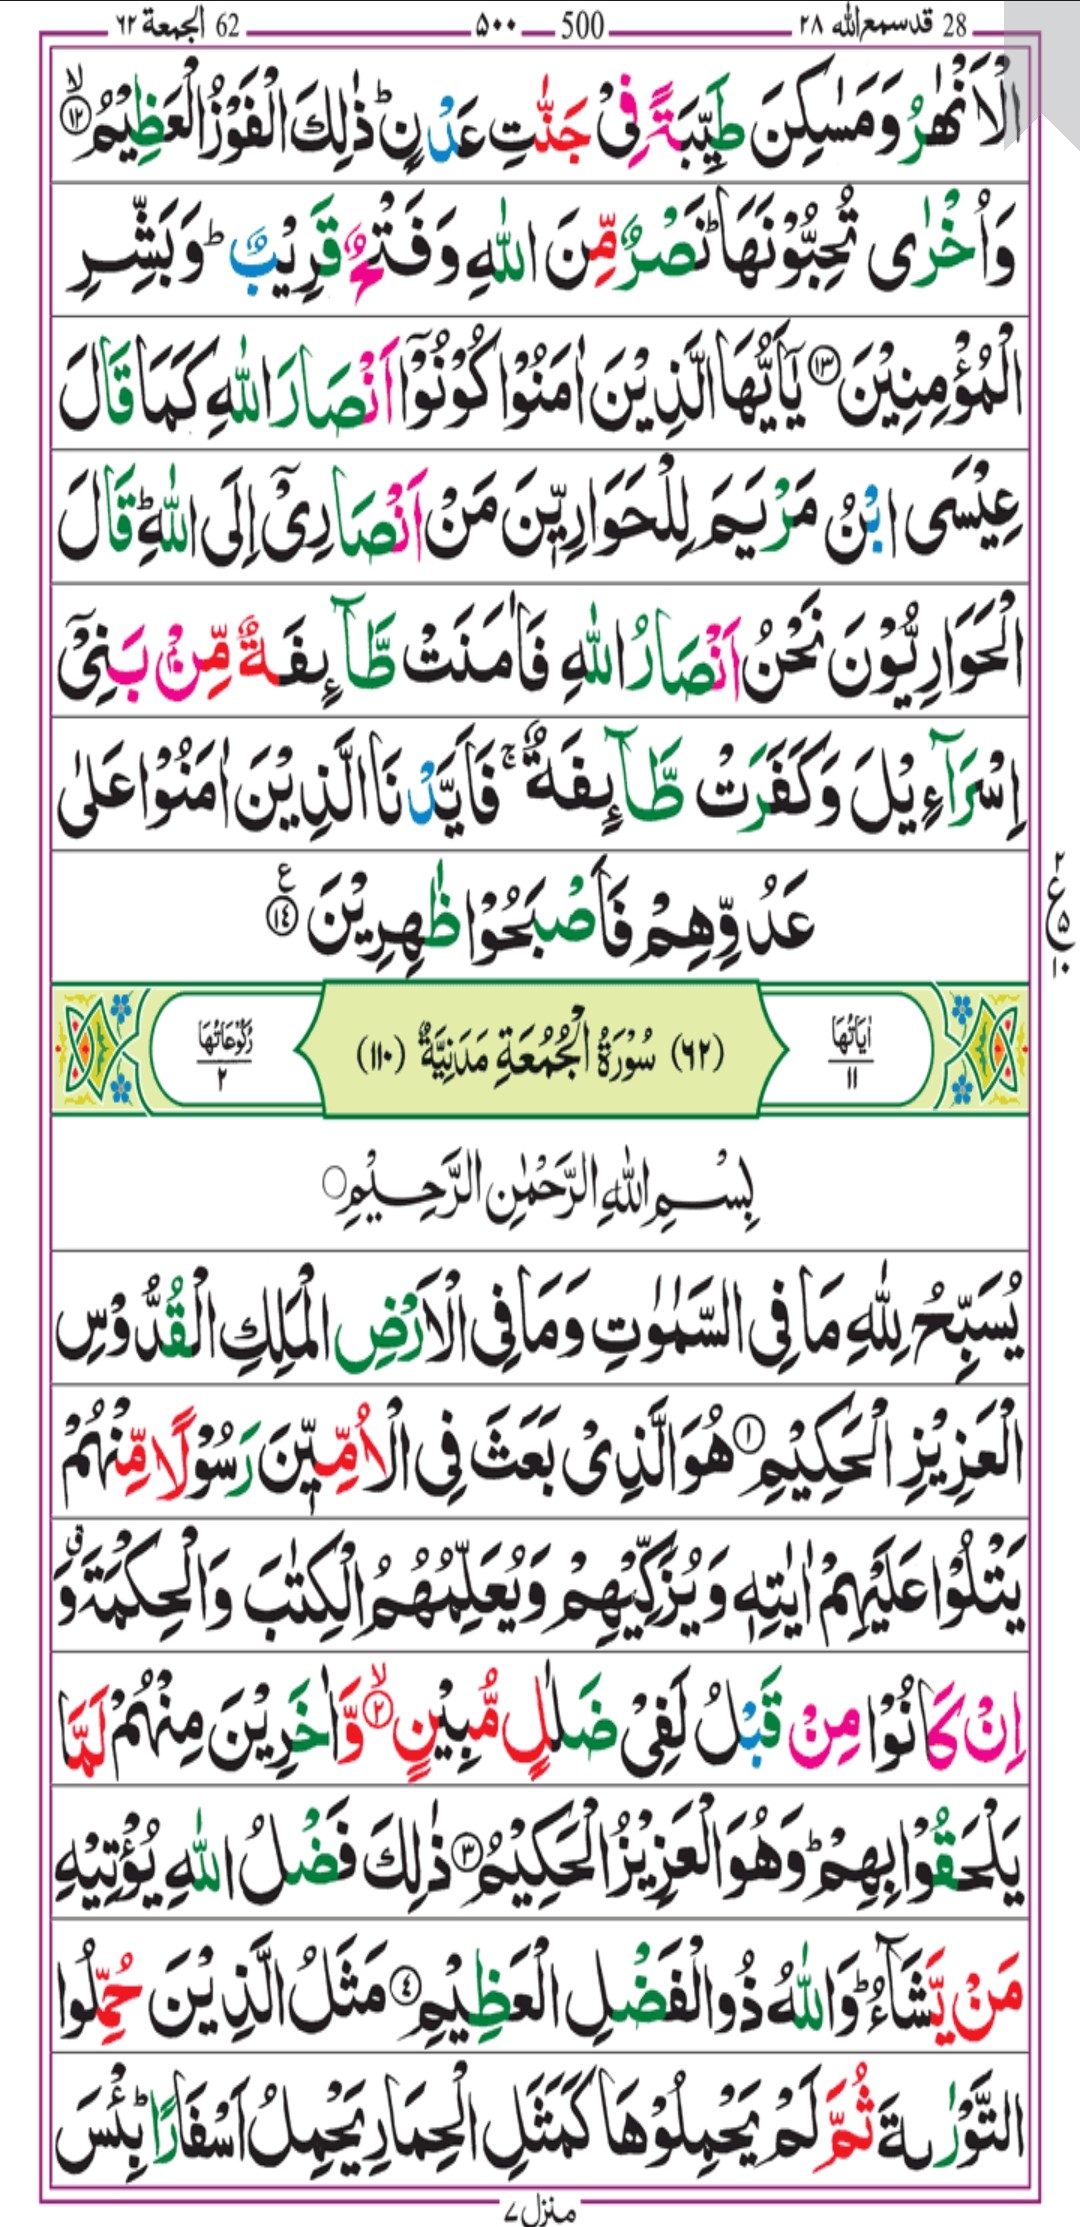 28 قدسمع الله ٢٨ 500 ٥٠٠ 62 الجمعة ٦٢
الْاَنْهٰرُ وَمَسٰكِنَ طَيِّبَةً فِىْ جَنّٰتِ عَدْنٍ ؕ ذٰلِكَ الْفَوْزُ الْعَظِيْمُ ۙ‏ ﴿١٢﴾
وَاُخْرٰى تُحِبُّوْنَهَا ؕ نَصْرٌ مِّنَ اللّٰهِ وَفَتْحٌ قَرِيْبٌ ؕ وَبَشِّرِ
الْمُؤْمِنِيْنَ ﴿١٣﴾ يٰۤاَيُّهَا الَّذِيْنَ اٰمَنُوْا كُوْنُوْۤا اَنْصَارَ اللّٰهِ كَمَا قَالَ
عِيْسَى ابْنُ مَرْيَمَ لِلْحَوَارِيّٖنَ مَنْ اَنْصَارِىْۤ اِلَى اللّٰهِ ؕ قَالَ
الْحَوَارِيُّوْنَ نَحْنُ اَنْصَارُ اللّٰهِ فَاٰمَنَتْ طَّآٮِٕفَةٌ مِّنْۢ بَنِىْۤ
اِسْرَآءِيْلَ وَكَفَرَتْ طَّآٮِٕفَةٌ ۚ فَاَيَّدْنَا الَّذِيْنَ اٰمَنُوْا عَلٰى
عَدُوِّهِمْ فَاَصْبَحُوْا ظٰهِرِيْنَ ﴿١٤﴾ ع
٢ ع ٥ ١٠
اٰيَاتُهَا ١١ (٦٢) سُوْرَةُ الْجُمُعَةِ مَدَنِيَّةٌ (١١٠) رُكُوْعَاتُهَا ٢
بِسْمِ اللّٰهِ الرَّحْمٰنِ الرَّحِيْمِ ○
يُسَبِّحُ لِلّٰهِ مَا فِى السَّمٰوٰتِ وَمَا فِى الْاَرْضِ الْمَلِكِ الْقُدُّوْسِ
الْعَزِيْزِ الْحَكِيْمِ ﴿١﴾ هُوَ الَّذِىْ بَعَثَ فِى الْاُمِّيّٖنَ رَسُوْلًا مِّنْهُمْ
يَتْلُوْا عَلَيْهِمْ اٰيٰتِهٖ وَيُزَكِّيْهِمْ وَيُعَلِّمُهُمُ الْكِتٰبَ وَالْحِكْمَةَ ۗ وَ
اِنْ كَانُوْا مِنْ قَبْلُ لَفِىْ ضَلٰلٍ مُّبِيْنٍ ۙ‏ ﴿٢﴾ وَّاٰخَرِيْنَ مِنْهُمْ لَمَّا
يَلْحَقُوْا بِهِمْ ؕ وَهُوَ الْعَزِيْزُ الْحَكِيْمُ ﴿٣﴾ ذٰلِكَ فَضْلُ اللّٰهِ يُؤْتِيْهِ
مَنْ يَّشَآءُ ؕ وَاللّٰهُ ذُو الْفَضْلِ الْعَظِيْمِ ﴿٤﴾ مَثَلُ الَّذِيْنَ حُمِّلُوا
التَّوْرٰٮةَ ثُمَّ لَمْ يَحْمِلُوْهَا كَمَثَلِ الْحِمَارِ يَحْمِلُ اَسْفَارًا ؕ بِئْسَ
منزل ٧